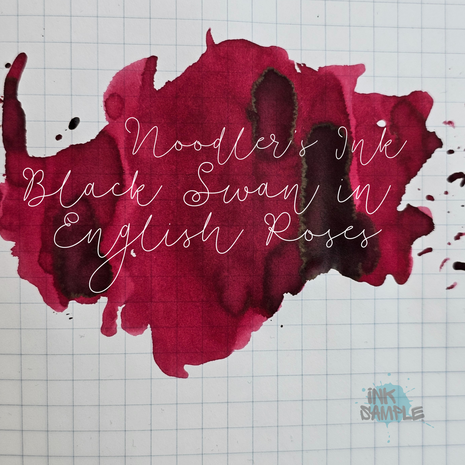 Noodler's Ink
Black Swan in
English Roses
INK
SAMPLE